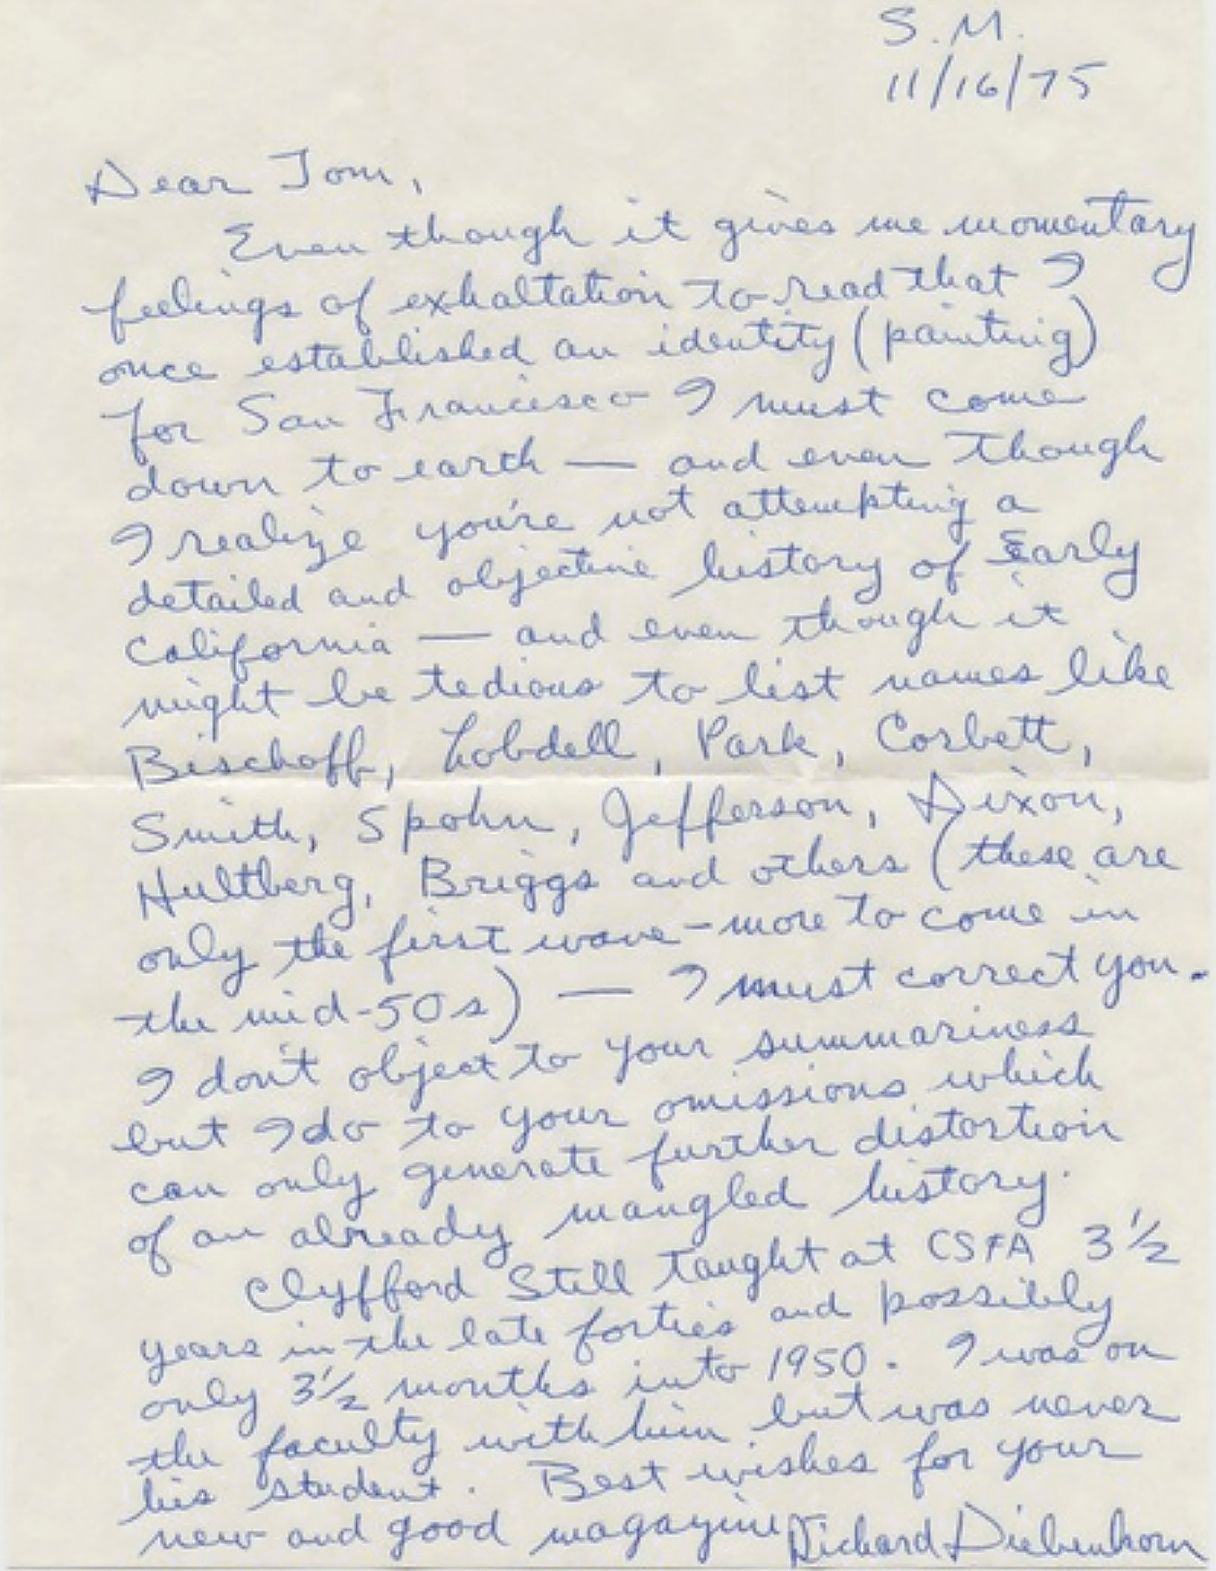 S.M.
11/16/75
Dear Tom,
Even though it gives me momentary
feelings of exhaltation to read that I
once established an identity (painting)
for San Francisco I must come
down to earth — and even though
I realize you're not attempting a
detailed and objective history of Early
California — and even though it
might be tedious to list names like
Bischoff, Lobdell, Park, Corbett,
Smith, Spohn, Jefferson, Dixon,
Hultberg, Briggs and others (these are
only the first wave - more to come in
the mid-50s) — I must correct you.
I don't object to your summariness
but I do to your omissions which
can only generate further distortion
of an already mangled history.
Clyfford Still taught at CSFA 3 1/2
years in the late forties and possibly
only 3 1/2 months into 1950. I was on
the faculty with him but was never
his student. Best wishes for your
new and good magazine Richard Diebenkorn